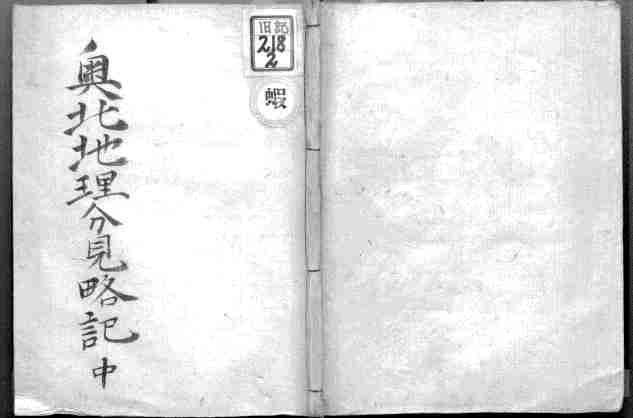 旧記
218
2
蝦
奥北地理分見略記 中